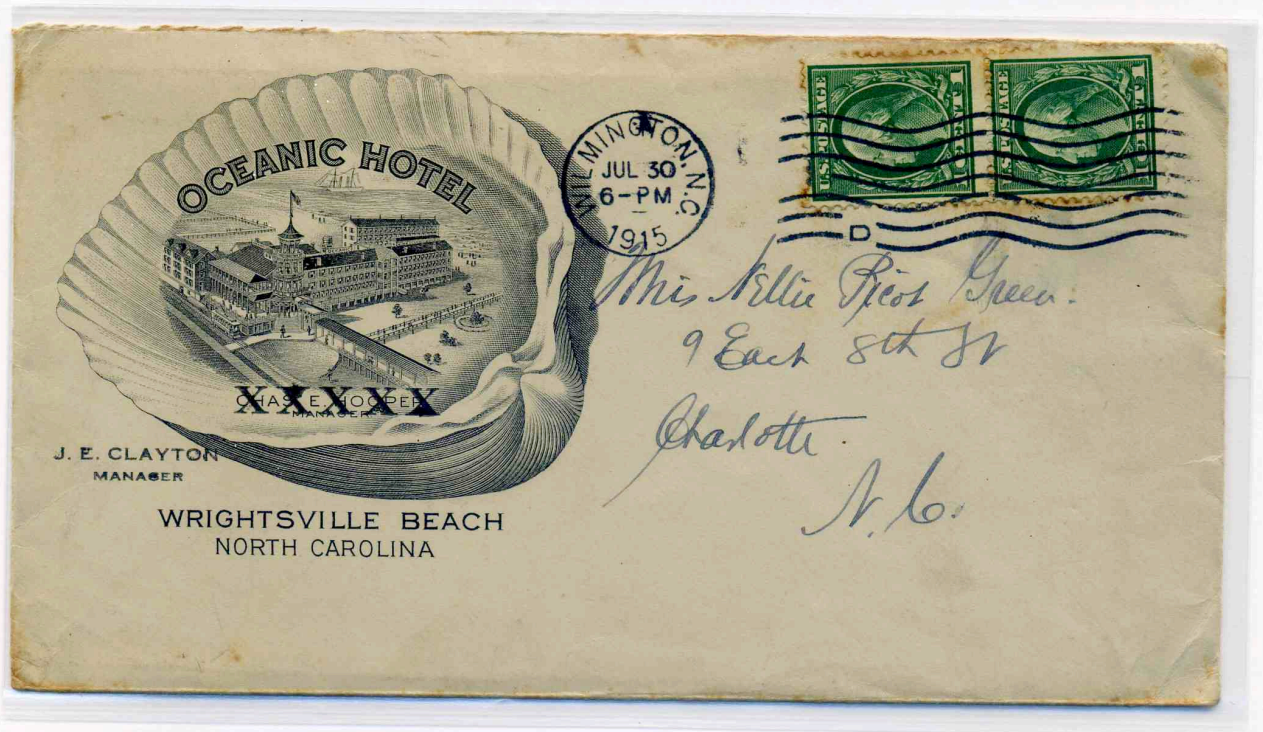 OCEANIC HOTEL
CHAS. E. HOOPER
MANAGER
XXXXX
J. E. CLAYTON
MANAGER
WRIGHTSVILLE BEACH
NORTH CAROLINA
WILMINGTON, N.C.
JUL 30
6-PM
1915
D
U.S. POSTAGE
1 CENT 1
U.S. POSTAGE
1 CENT 1
Miss Nellie Picot Green.
9 East 8th St
Charlotte
N.C.